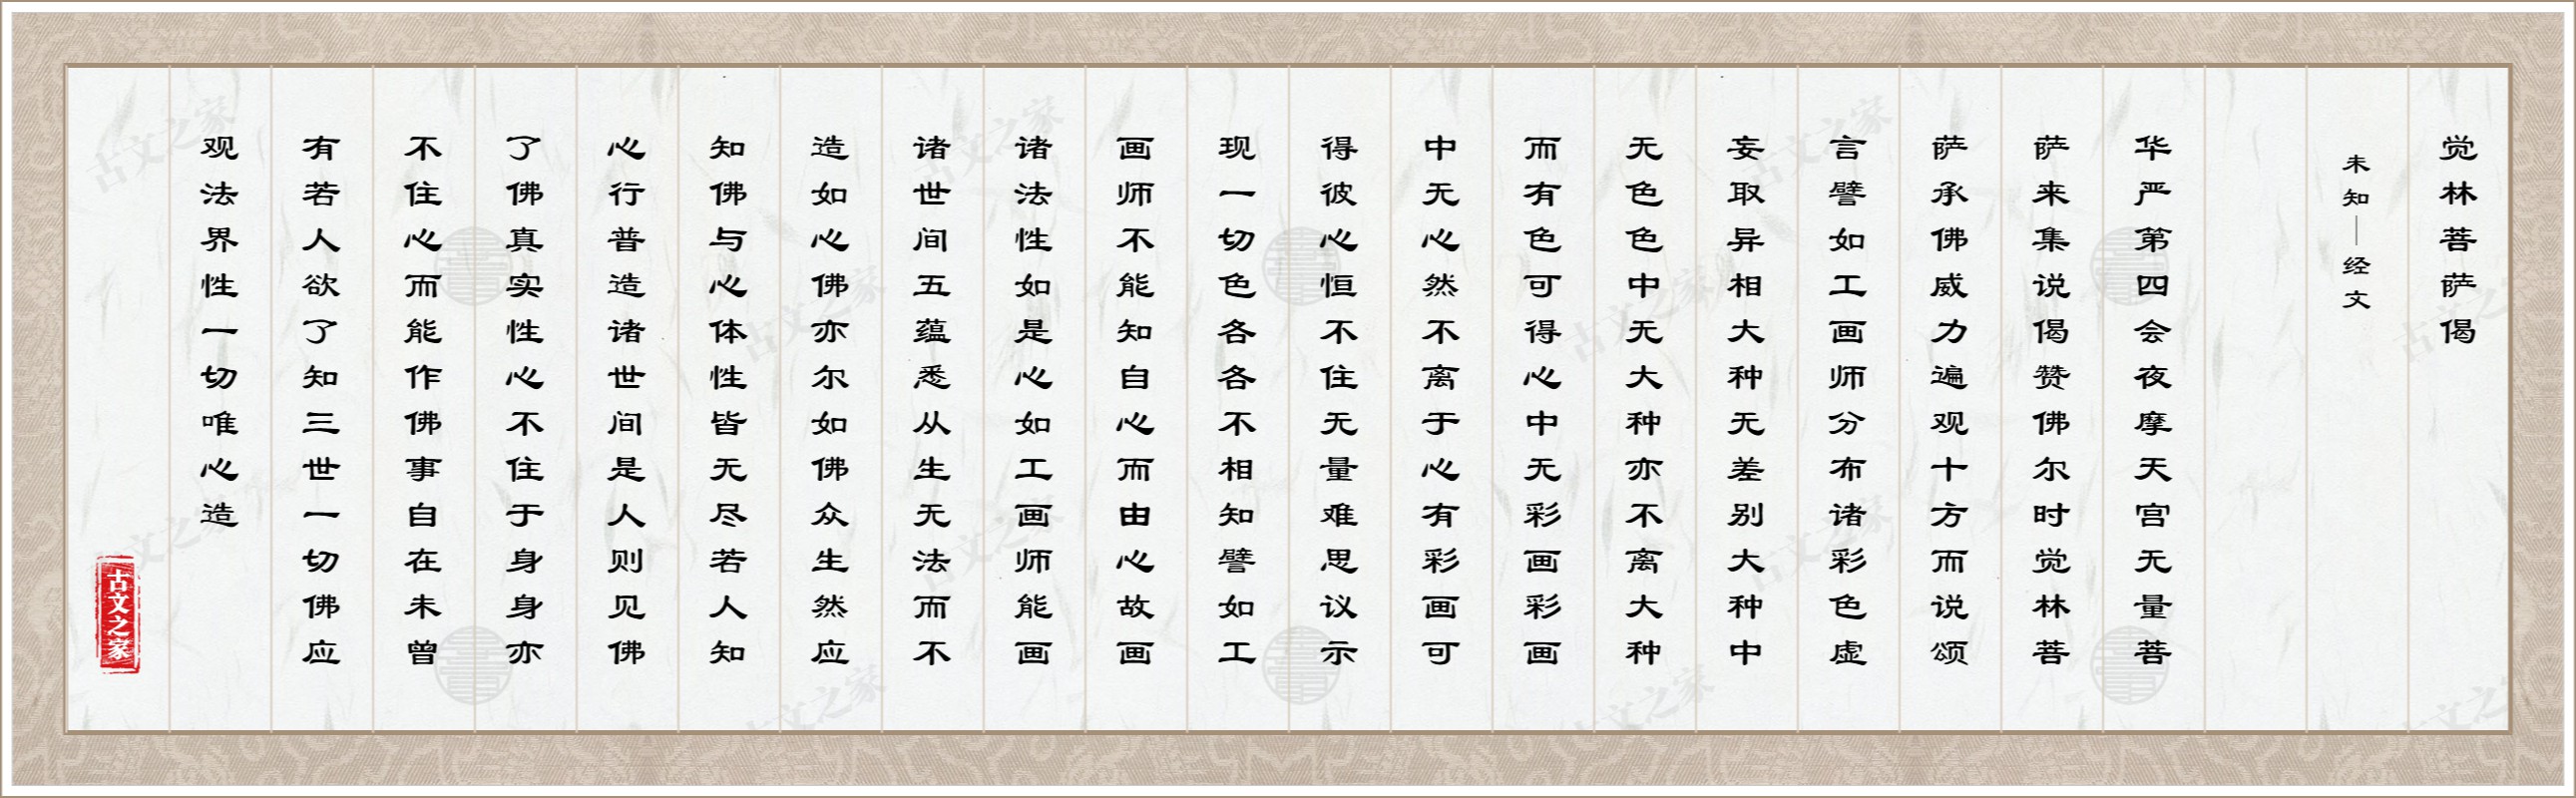 觉林菩萨偈
未知—经文
华严第四会夜摩天宫无量菩
萨来集说偈赞佛尔时觉林菩
萨承佛威力遍观十方而说颂
言譬如工画师分布诸彩色虚
妄取异相大种无差别大种中
无色色中无大种亦不离大种
而有色可得心中无彩画彩画
中无心然不离于心有彩画可
得彼心恒不住无量难思议示
现一切色各各不相知譬如工
画师不能知自心而由心故画
诸法性如是心如工画师能画
诸世间五蕴悉从生无法而不
造如心佛亦尔如佛众生然应
知佛与心体性皆无尽若人知
心行普造诸世间是人则见佛
了佛真实性心不住于身身亦
不住心而能作佛事自在未曾
有若人欲了知三世一切佛应
观法界性一切唯心造
古文之家